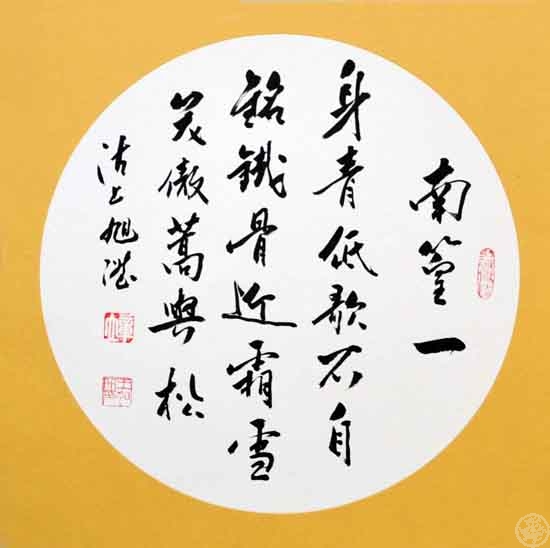 南篁一
身青低歌不自
銘鐵骨近霜雪
笑傲蒿與松
沽上旭